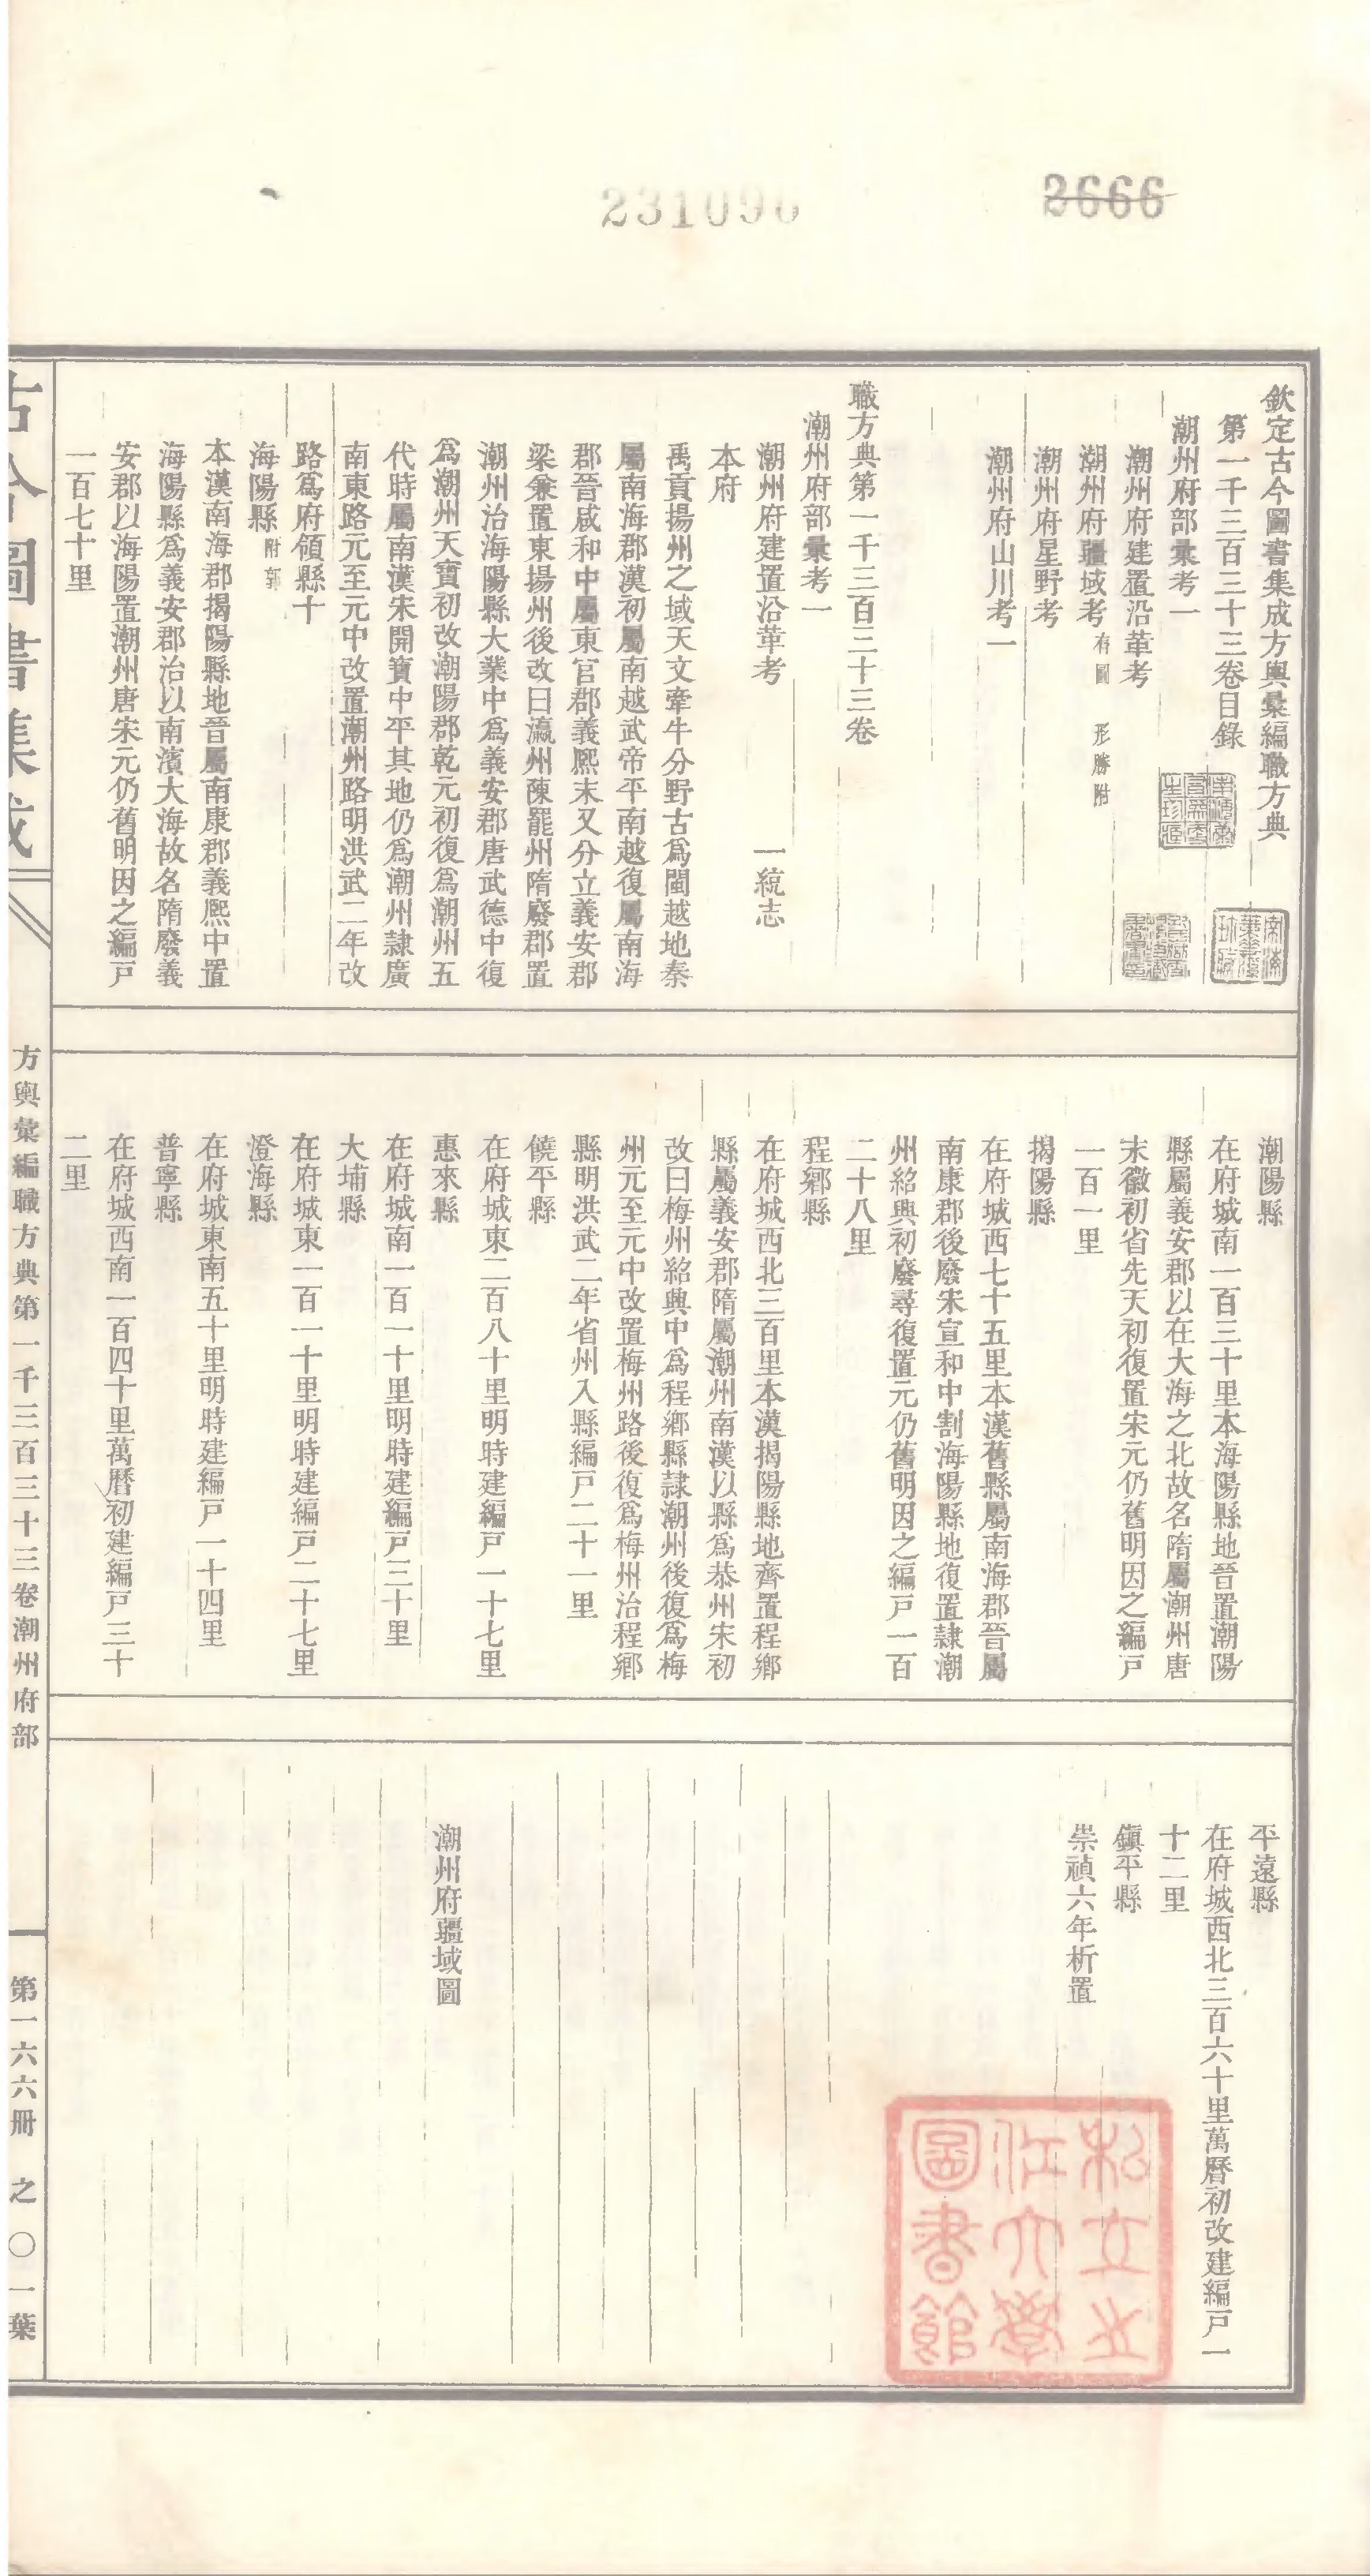 2666
231096
欽定古今圖書集成方輿彙編職方典
第一千三百三十三卷目錄
潮州府部彙考一
潮州府建置沿革考
潮州府疆域考 有圖 形勝附
潮州府星野考
潮州府山川考一
職方典第一千三百三十三卷
潮州府部彙考一
潮州府建置沿革考 一統志
本府
禹貢揚州之域天文牽牛分野古爲閩越地秦
屬南海郡漢初屬南越武帝平南越復屬南海
郡晉咸和中屬東官郡義熙末又分立義安郡
梁兼置東揚州後改曰瀛州陳罷州隋廢郡置
潮州治海陽縣大業中爲義安郡唐武德中復
爲潮州天寶初改潮陽郡乾元初復爲潮州五
代時屬南漢宋開寶中平其地仍爲潮州隸廣
南東路元至元中改置潮州路明洪武二年改
路爲府領縣十
海陽縣 附郭
本漢南海郡揭陽縣地晉屬南康郡義熙中置
海陽縣爲義安郡治以南濱大海故名隋廢義
安郡以海陽置潮州唐宋元仍舊明因之編戸
一百七十里
潮陽縣
在府城南一百三十里本海陽縣地晉置潮陽
縣屬義安郡以在大海之北故名隋屬潮州唐
末徽初省先天初復置宋元仍舊明因之編戸
一百一里
揭陽縣
在府城西七十五里本漢舊縣屬南海郡晉屬
南康郡後廢宋宣和中割海陽縣地復置隸潮
州紹興初廢尋復置元仍舊明因之編戸一百
二十八里
程鄉縣
在府城西北三百里本漢揭陽縣地齊置程鄉
縣屬義安郡隋屬潮州南漢以縣爲恭州宋初
改曰梅州紹興中爲程鄉縣隸潮州後復爲梅
州元至元中改置梅州路後復爲梅州治程鄉
縣明洪武二年省州入縣編戸二十一里
饒平縣
在府城東二百八十里明時建編戸一十七里
惠來縣
在府城南一百一十里明時建編戸三十里
大埔縣
在府城東一百一十里明時建編戸二十七里
澄海縣
在府城東南五十里明時建編戸一十四里
普寧縣
在府城西南一百四十里萬曆初建編戸三十
二里
平遠縣
在府城西北三百六十里萬曆初改建編戸一
十二里
鎭平縣
崇禎六年析置
潮州府疆域圖
私立之
江大學
圖書館
古今圖書集成
方輿彙編職方典第一千三百三十三卷潮州府部
第一六六冊 之〇一葉